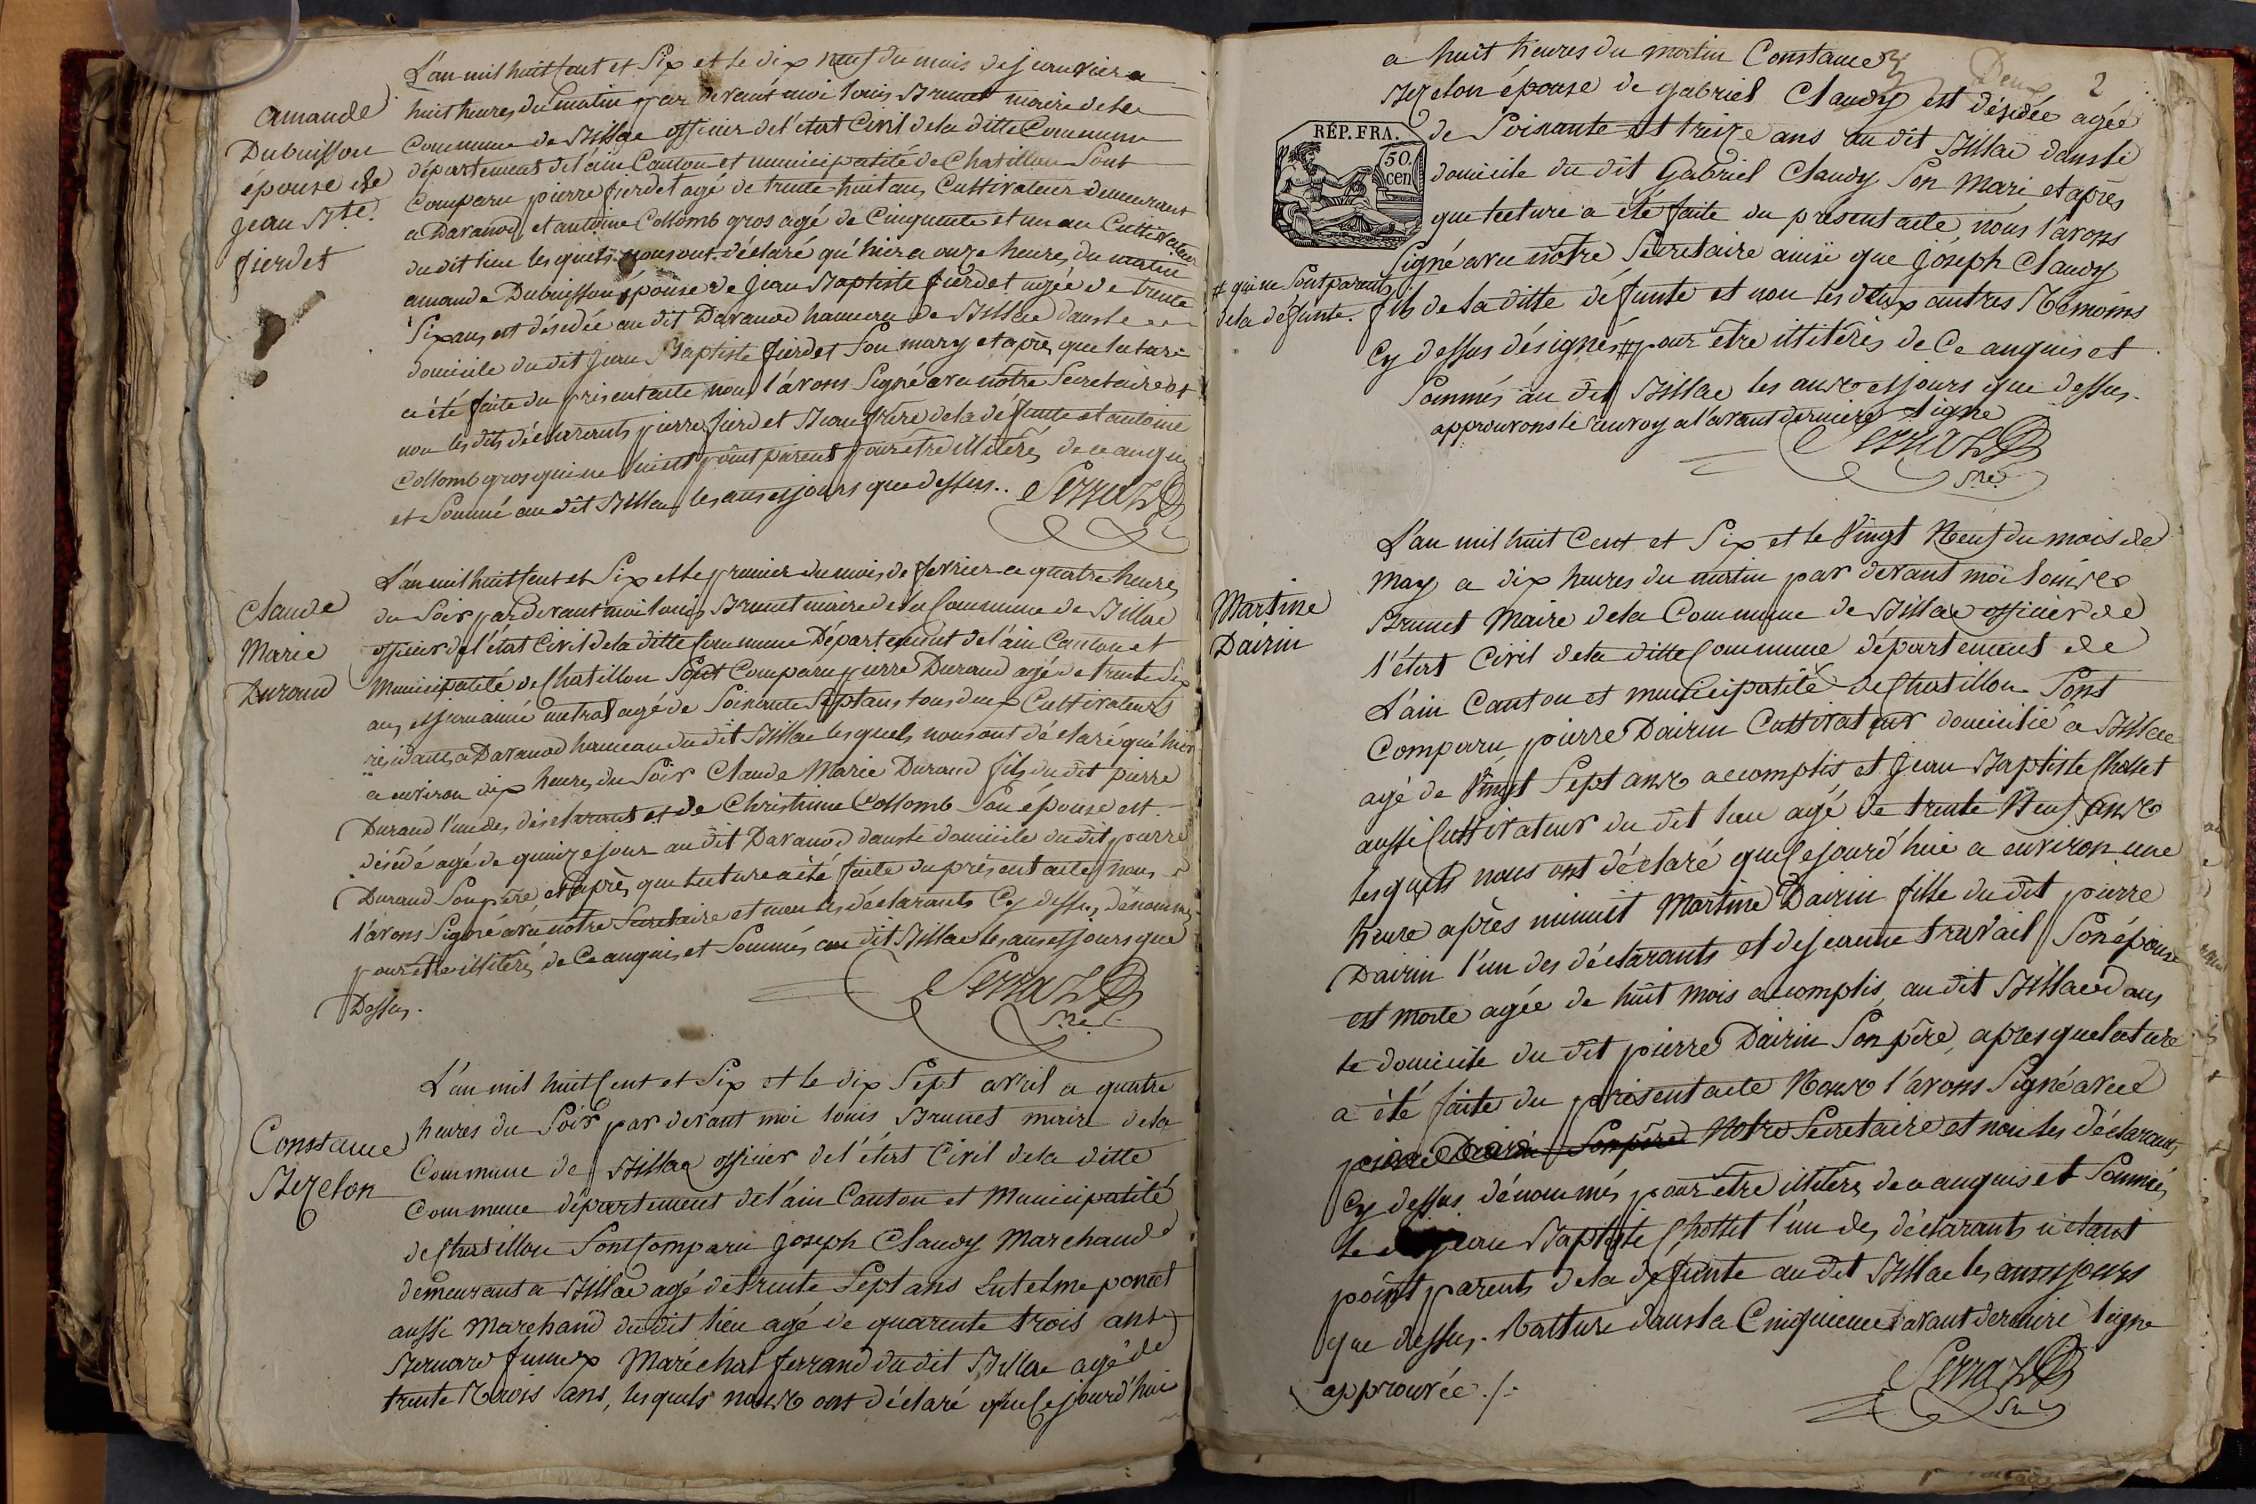 Amande
Dubuisson
épouse de
Jean Bte.
fierdet
L'an mil huit cent et Six et le dix neuf du mois de janvier a
huit heures du matin par devant moi louis Brunet maire de la
Commune de Billiae officier de l'état Civil de la ditte Commune
département de l'ain Canton et municipalité de Chatillon Sont
Comparu pierre fierdet agé de trente huit ans, Cultivateur demeurant
a Davanod, et antoine Collomb gros agé de Cinquante et un an Cultivateur
du dit lieu les quels nous ont déclaré qu'hier a onze heures du matin
amande Dubuisson épouse de Jean Baptiste fierdet agée de trente
Six ans, est désédée au dit Davanod hameau de Billiae dans le
domicile du dit Jean Baptiste fierdet Son mary et après que lecture
a été faite du présent acte nous l'avons Signé avec notre Secretaire et
non les dits déclarants pierre fierdet Beau frère de la défunte et antoine
Collomb gros qui ne lui est point parent pour etre illitérés de ce anquis
et Sommé au dit Billiae les ans et jours que dessus.. Serraz
Claude
Marie
Durand
L'an mil huit cent et Six et le premier du mois de fevrier a quatre heures
du Soir par devant moi louis Brunet maire de la Commune de Billiae
officier de l'état Civil de la ditte Commune Département de l'ain Canton et
Municipalité de Chatillon Sont Comparu pierre Durand agé de trente Six
ans, et Jean aimé metral agé de Soixante Sept ans tous deux Cultivateurs
résidants a Davanod hameau du dit Billiae lesquels nous ont déclaré qu'hier
a environ dix heures du Soir Claude Marie Durand fils du dit pierre
Durand l'un des déclarants et de Christine Collomb Son épouse est
désédé agé de quinze jours au dit Davanod dans le domicile du dit pierre
Durand Son père, et après que lecture a été faite du présent acte nous
l'avons Signé avec notre Secretaire et non les déclarants Cy dessus dénommés
pour etre illitérés de Ce anquis, et Sommés au dit Billiae les ans et jours que
Dessus. Serraz
Sre.
Constance
Bezelon
L'an mil huit Cent et Six et le dix Sept avril a quatre
heures du Soir par devant moi louis Brunet maire de la
Commune de Billiae officier de l'état Civil de la ditte
Commune département de l'ain Canton et Municipalité
de Chatillon Sont Comparu Joseph Claudy Marchand
demeurant a Billiae agé de trente Sept ans poncet
aussi Marchand du dit lieu agé de quarante trois ans
Bernard Maréchal ferrand du dit Billiae agé de
trente Trois ans, lesquels nous ont déclaré que Cejourd'hui
Deux 2
a huit heures du matin Constance
Bezelon épouse de gabriel Claudy est désédée agée
RÉP. FRA.
50.
cen
de Soixante et treize ans au dit Billiae dans le
domicile du dit Gabriel Claudy Son Mari et après
que lecture a été faite du présent acte, nous l'avons
Signé avec notre Secretaire ainsi que Joseph Claudy
# qui ne Sont parents
de la défunte.
fils de la ditte défunte et non les deux autres Témoins
Cy dessus désignés # pour être illitérés de Ce anquis et
Sommés au dit Billiae les ans et jours que dessus.
approuvons le renvoy a l'avant dernière ligne
Serraz
Sre.
Martine
Dairin
L'an mil huit Cent et Six et le Vingt Neuf du mois de
May a dix heures du matin par devant moi louis
Brunet Maire de la Commune de Billiae officier de
l'état Civil de la ditte Commune département de
L'ain Canton et municipalité de Chatillon Sont
Comparu pierre Dairin Cultivateur domicilié a Billiae
agé de Vingt Sept ans accomplis et Jean Baptiste Chollet
aussi Cultivateur du dit lieu agé de trente Neuf ans
lesquels nous ont déclaré que Cejourd'hui a environ une
heure après minuit Martine Dairin fille du dit pierre
Dairin l'un des déclarants et de jeanne travail Son épouse
est morte agée de huit mois accomplis, au dit Billiae dans
le domicile du dit pierre Dairin Son père, après que lecture
a été faite du présent acte Nous l'avons Signé avec
pierre Dairin Son père Notre Secretaire et non les déclarants
Cy dessus dénommés pour être illitérés de ce anquis et Sommés,
le Jean Baptiste Chollet l'un des déclarants n'étant
point parents de la défunte au dit Billiae les ans et jours
que dessus. Rature dans la Cinquième avant dernière ligne
approuvée ./.
Serraz
Sre